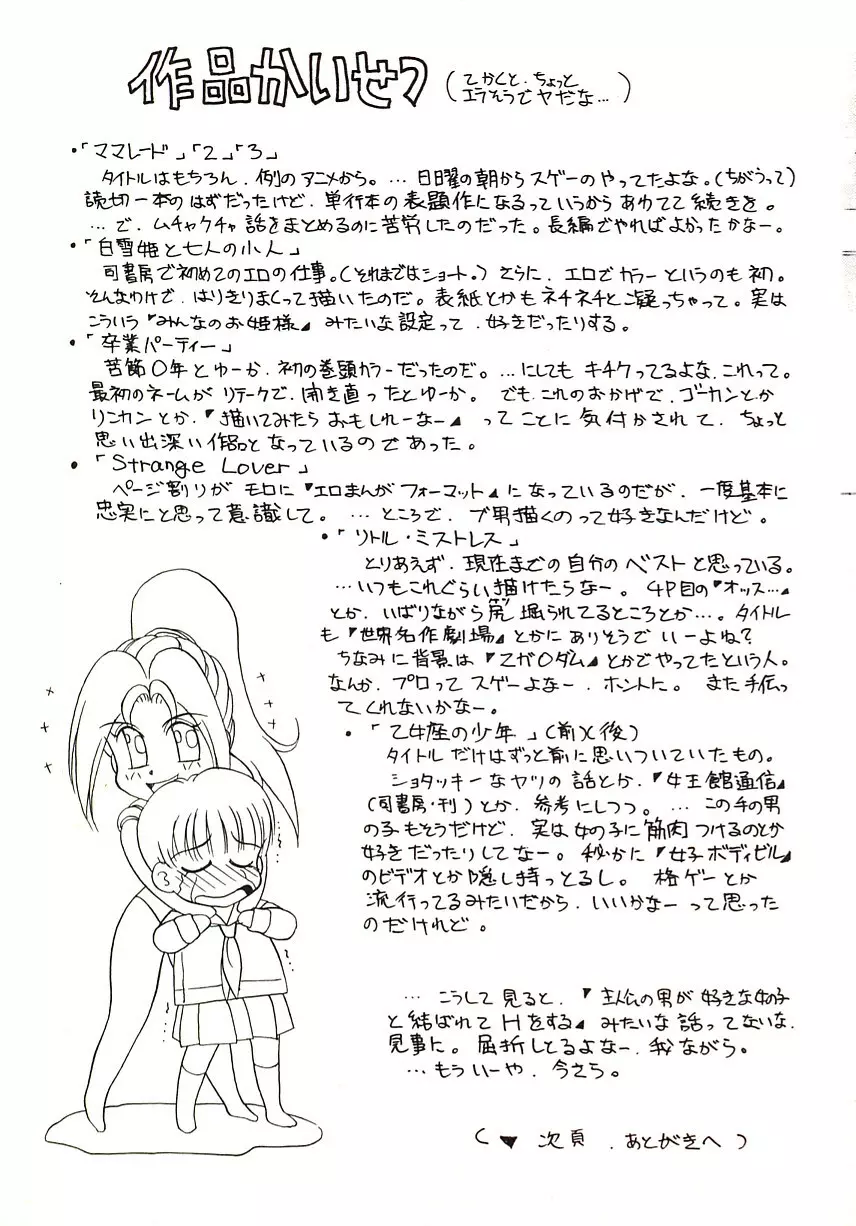 作品かいせつ
(とかくと、ちょっと
エラそうでヤだな…)
・「ママレード」「2」「3」
タイトルはもちろん、例のアニメから。…日曜の朝からスゲーのやってたよな。(ちがうって)
読切一本のはずだったけど、単行本の表題作になるっていうからあわてて続きを。
…で、ムチャクチャ話をまとめるのに苦労したのだった。長編でやればよかったかなー。
・「白雪姫と七人の小人」
司書房で初めてのエロの仕事。(それまではショート。)さらに、エロでカラーというのも初。
そんなわけで、はりきりまくって描いたのだ。表紙とかもネチネチと凝っちゃって。実は
こういう『みんなのお姫様』みたいな設定って、好きだったりする。
・「卒業パーティー」
苦節〇年とゆーか、初の巻頭カラーだったのだ。…にしてもキチクってるよな、これって。
最初のネームがリテークで、開き直ったとゆーか。でも、これのおかげで、ゴーカンとか
リンカンとか、『描いてみたらおもしれーなー』ってことに気付かされて、ちょっと
思い出深い作品となっているのであった。
・「Strange Lover」
ページ割りがモロに『エロまんがフォーマット』になっているのだが、一度基本に
忠実にと思って意識して。…ところで、ブ男描くのって好きなんだけど。
・「リトル・ミストレス」
とりあえず、現在までの自分のベストと思っている。
…いつもこれぐらい描けたらなー。4P目の『オッス…』
とか、いばりながら尻掘られてるところとか…。タイトル
も『世界名作劇場』とかにありそうでいーよね?
ちなみに背景は『Zガ〇ダム』とかでやってたという人。
なんか、プロってスゲーよなー、ホントに。また手伝っ
てくれないかなー。
・「乙女座の少年」(前)(後)
タイトルだけはずっと前に思いついていたもの。
ショタッキーなヤツの話とか、『女王館通信』
(司書房・刊)とか、参考にしつつ。…この手の男
の子もそうだけど、実は女の子に筋肉つけるのとか
好きだったりしてなー。秘かに『女子ボディビル』
のビデオとか隠し持っとるし。格ゲーとか
流行ってるみたいだから、いいかなーって思った
のだけれど。
…こうして見ると、『主人公の男が好きな女の子
と結ばれてHをする』みたいな話ってないな、
見事に。屈折してるよなー、我ながら。
…もういーや、今さら。
(▼次頁、あとがきへ)